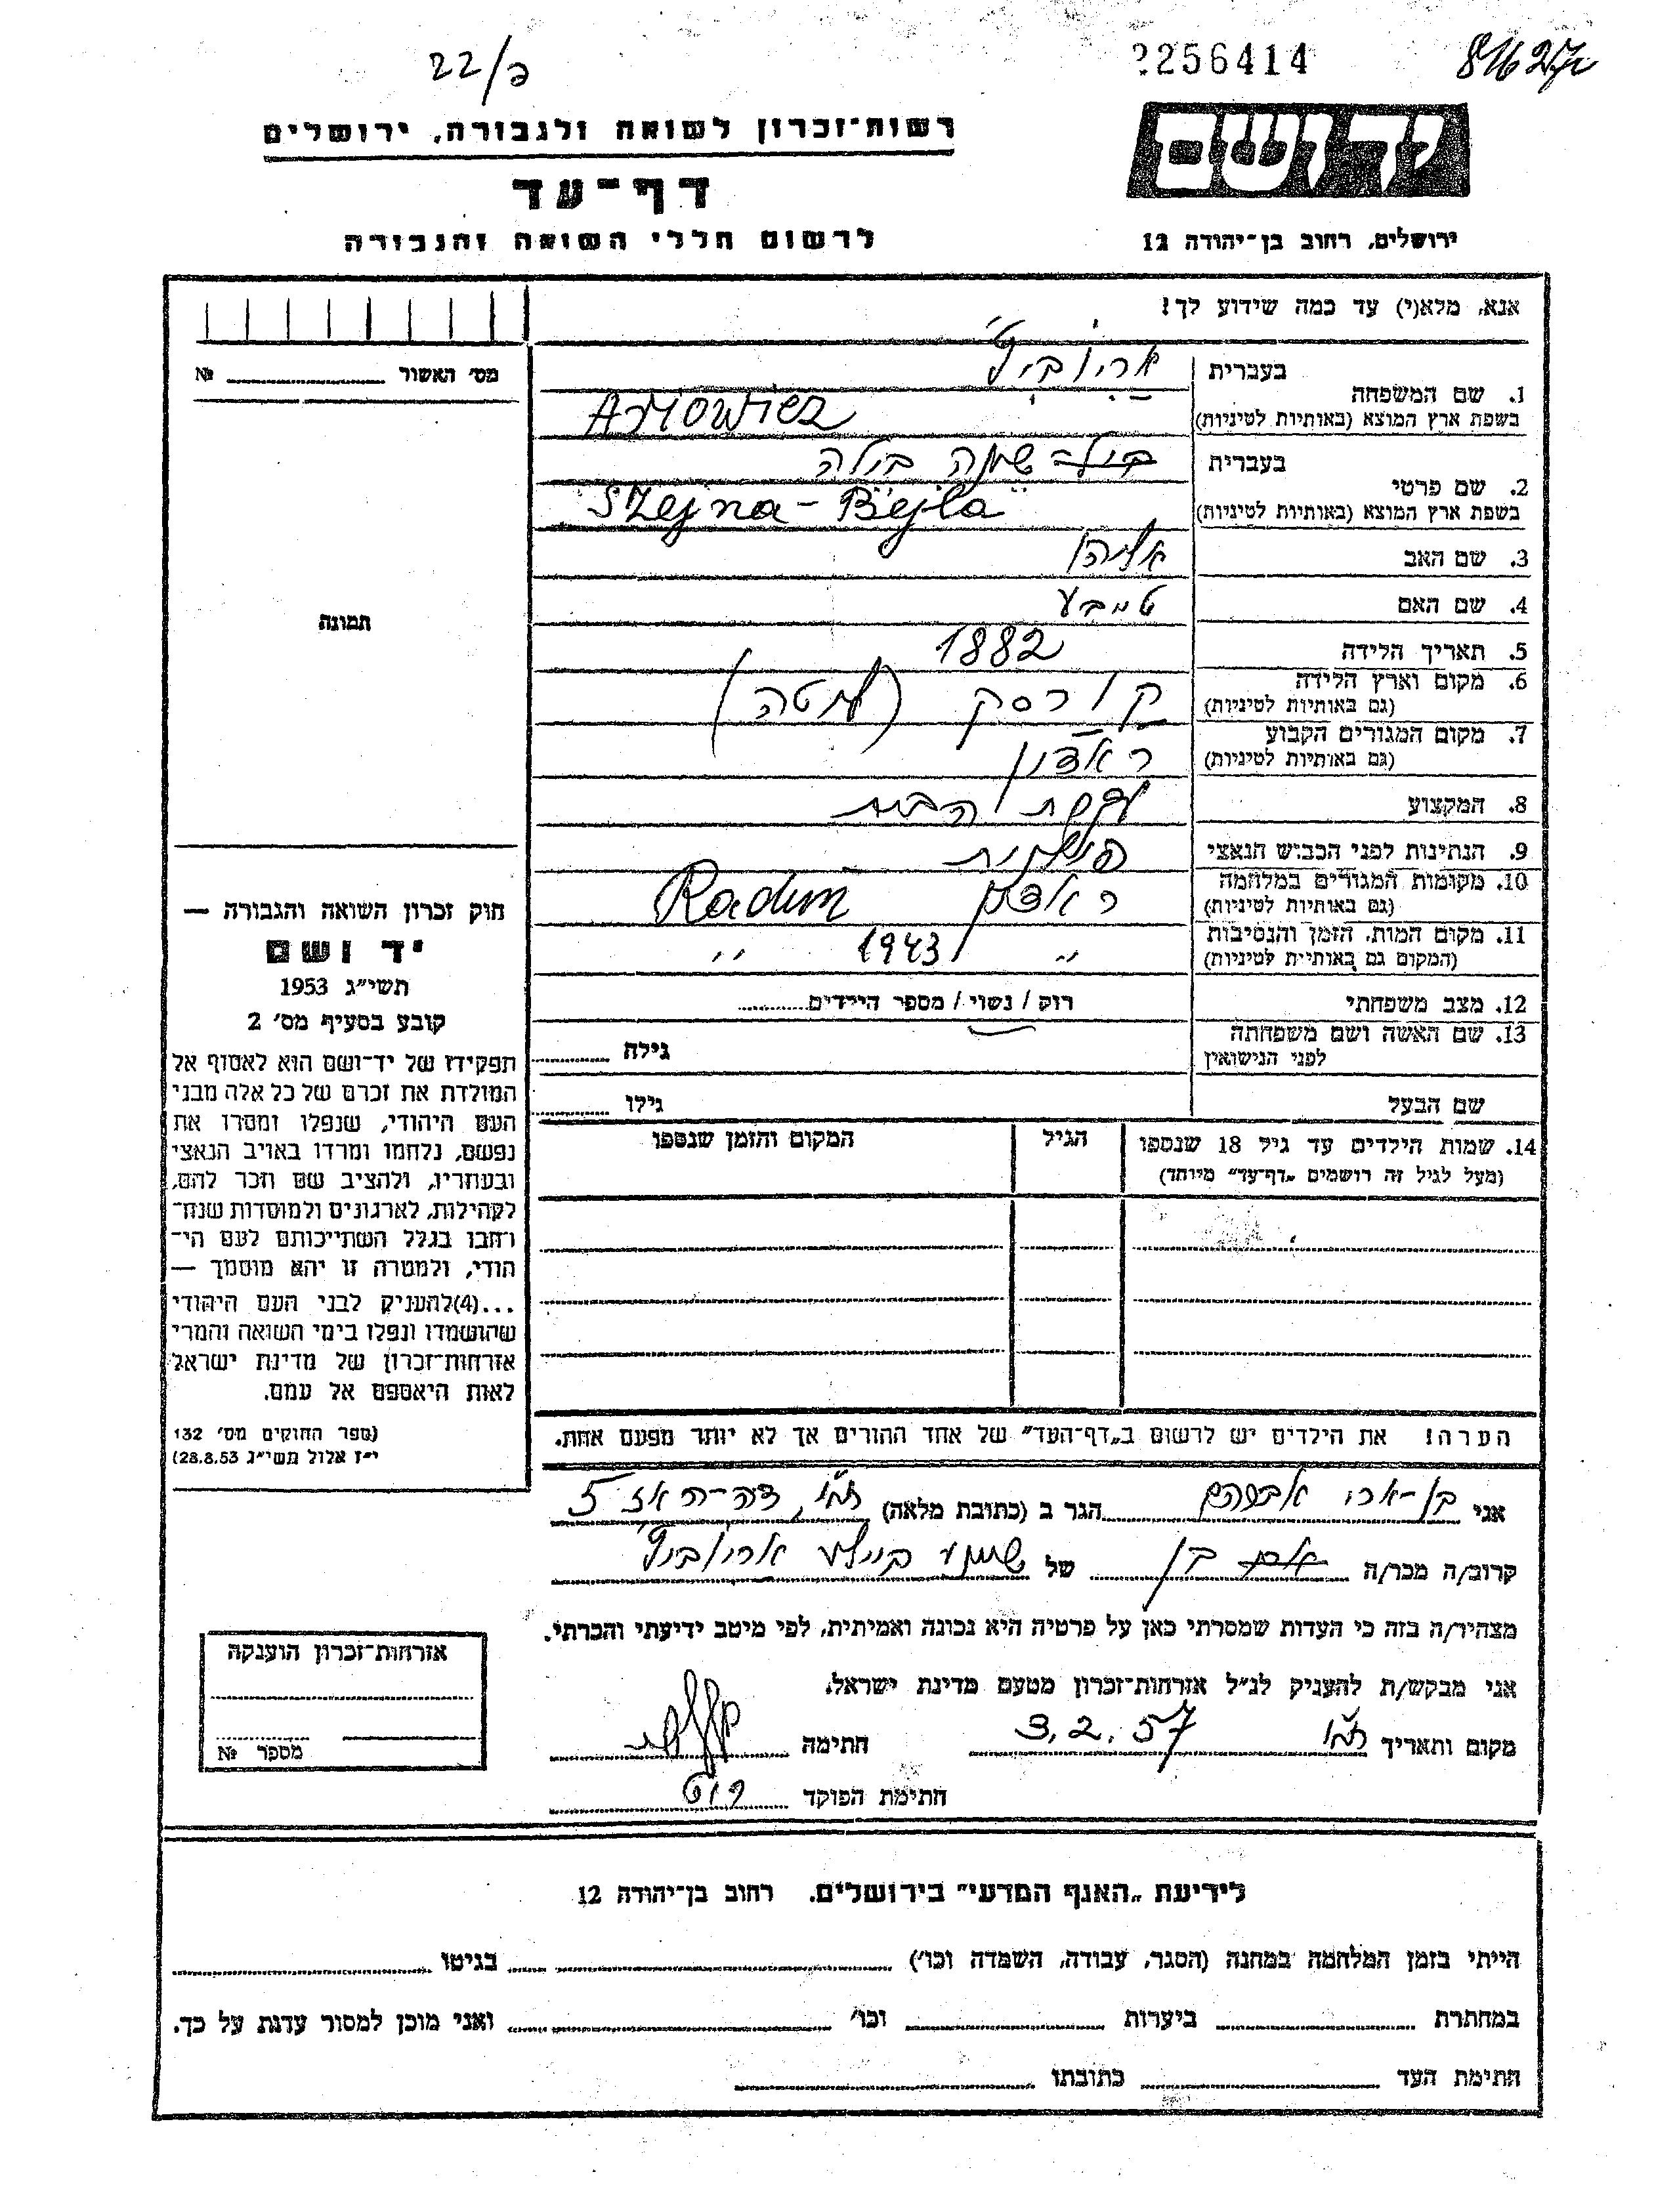 22/פ
2256414
81627
רשות־זכרון לשואה ולגבורה, ירושלים
יד ושם
דף־עד
לרשום חללי השואה והגבורה
ירושלים, רחוב בן־יהודה 12
אנא, מלא(י) עד כמה שידוע לך!
מס׳ האשור № 
1. שם המשפחה
בעברית
אריוביץ
בשפת ארץ המוצא (באותיות לטיניות)
Arjowicz
2. שם פרטי
בעברית
שיינה ביילה
בשפת ארץ המוצא (באותיות לטיניות)
Szejna-Bejla
3. שם האב
אליהו
4. שם האם
טויבע
5. תאריך הלידה
1882
6. מקום וארץ הלידה
(גם באותיות לטיניות)
קורסק (ליטה)
7. מקום המגורים הקבוע
(גם באותיות לטיניות)
ראדין
8. המקצוע
עקרת הבית
9. הנתינות לפני הכבוש הנאצי
פולנית
10. מקומות המגורים במלחמה
(גם באותיות לטיניות)
ראדין Radun
11. מקום המות, הזמן והנסיבות
(המקום גם באותיות לטיניות)
״ 1943 ״
12. מצב משפחתי
רווק / נשוי / מספר הילדים
13. שם האשה ושם משפחתה
לפני הנישואין
גילה
שם הבעל
גילו
14. שמות הילדים עד גיל 18 שנספו
(מעל לגיל זה רושמים „דף־עד״ מיוחד)
הגיל
המקום והזמן שנספו
הערה! את הילדים יש לרשום ב„דף־העד״ של אחד ההורים אך לא יותר מפעם אחת.
תמונה
חוק זכרון השואה והגבורה —
יד ושם
תשי״ג 1953
קובע בסעיף מס׳ 2
תפקידו של יד־ושם הוא לאסוף אל
המולדת את זכרם של כל אלה מבני
העם היהודי, שנפלו ומסרו את
נפשם, נלחמו ומרדו באויב הנאצי
ובעוזריו, ולהציב שם וזכר להם,
לקהילות, לארגונים ולמוסדות שנח־
רבו בגלל השתייכותם לעם הי־
הודי, ולמטרה זו יהא מוסמך —
...(4)להעניק לבני העם היהודי
שהושמדו ונפלו בימי השואה והמרי
אזרחות־זכרון של מדינת ישראל
לאות היאספם אל עמם.
(ספר החוקים מס׳ 132
י״ז אלול תשי״ג 28.8.53)
אני בן-ארי אברהם הגר ב (כתובת מלאה) 5
קרוב/ה מכר/ה בן של שיינע ביילע אריוביץ
מצהיר/ה בזה כי העדות שמסרתי כאן על פרטיה היא נכונה ואמיתית, לפי מיטב ידיעתי והכרתי.
אני מבקש/ת להעניק לנ״ל אזרחות־זכרון מטעם מדינת ישראל.
מקום ותאריך ת״א 3.2.57 חתימה
חתימת הפוקד
אזרחות־זכרון הוענקה
מספר №
לידיעת „האגף המדעי״ בירושלים, רחוב בן־יהודה 12
הייתי בזמן המלחמה במחנה (הסגר, עבודה, השמדה וכו׳) בגיטו
במחתרת ביערות וכו׳ ואני מוכן למסור עדות על כך.
חתימת העד כתובתו